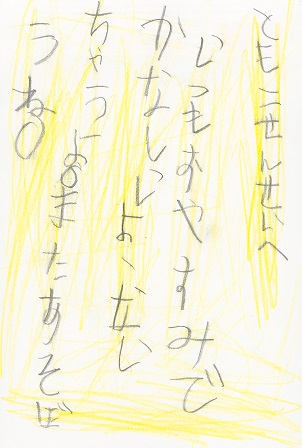 ともこせんせいへ
いつもおやすみで
かなしいよ、ない
ちゃうよ。またあそぼ
うね。